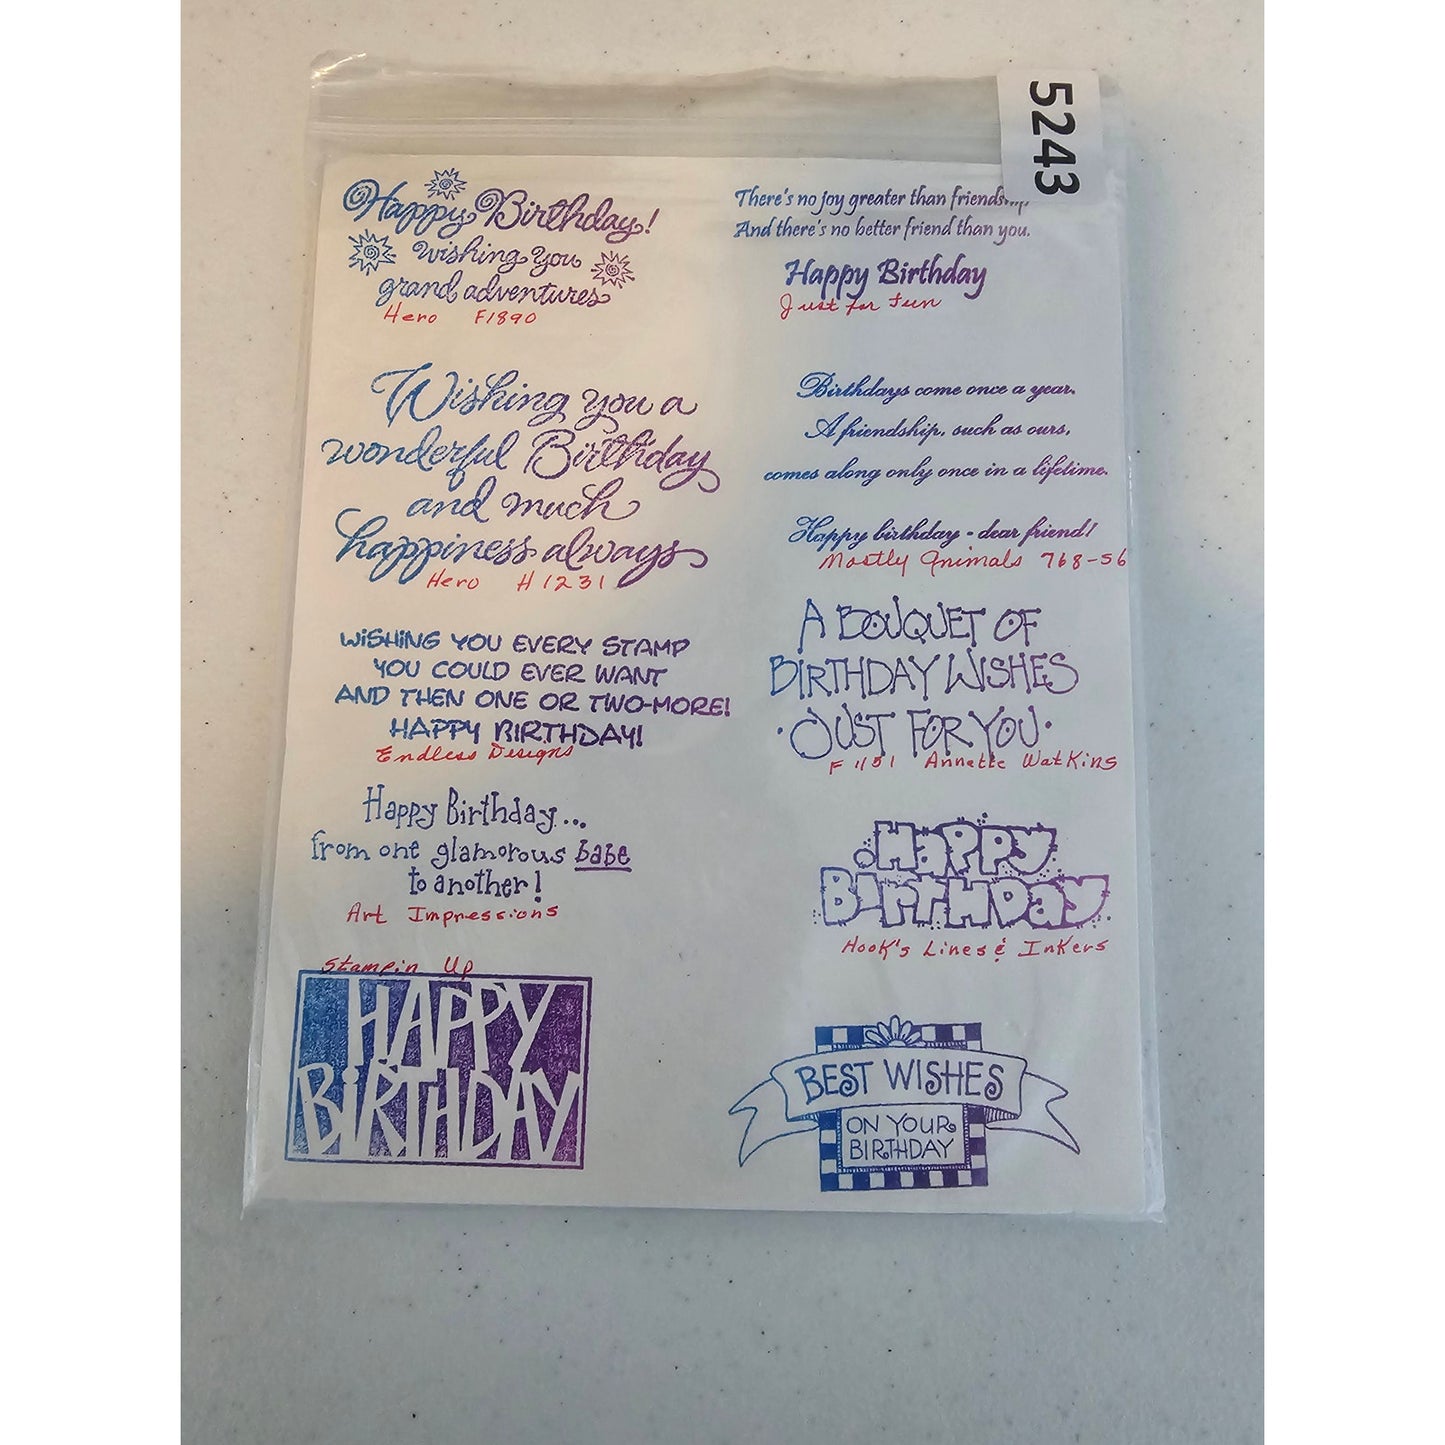 5243
Happy Birthday!
Wishing you
grand adventures
Hero F1890
There's no joy greater than friendship
And there's no better friend than you.
Happy Birthday
Just for Fun
Wishing you a
wonderful Birthday
and much
happiness always
Hero H1231
Birthdays come once a year.
A friendship, such as ours,
comes along only once in a lifetime.
Happy birthday - dear friend!
Mostly Animals 768-56
WISHING YOU EVERY STAMP
YOU COULD EVER WANT
AND THEN ONE OR TWO-MORE!
HAPPY BIRTHDAY!
Endless Designs
A BOUQUET OF
BIRTHDAY WISHES
·JUST FOR YOU·
F1151 Annette Watkins
Happy Birthday...
from one glamorous babe
to another!
Art Impressions
HAPPY
BIRTHDAY
Hook's Lines & Inkers
Stampin Up
HAPPY
BIRTHDAY
BEST WISHES
ON YOUR
BIRTHDAY